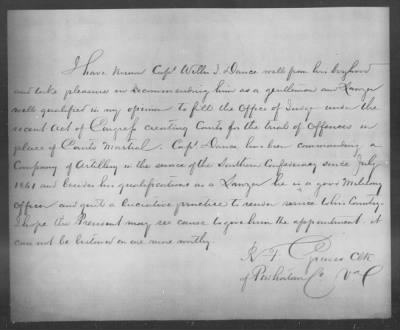 I have known Capt Willis J. Dance well from his boyhood
and take pleasure in recommending him as a gentleman and Lawyer
well qualified in my opinion to fill the Office of Judge under the
recent Act of Congress creating Courts for the trial of Offences in
place of Courts Martial. Capt Dance has been commanding a
Company of Artillery in the service of the Southern Confederacy since July
1861 and besides his qualifications as a Lawyer he is a good Military
Officer and quit a lucrative practice to render service to his Country.
I hope the President may see cause to give him the appointment. it
can not be bestowed on one more worthy.
R. F. Graves Clk
of Powhatan Co Va